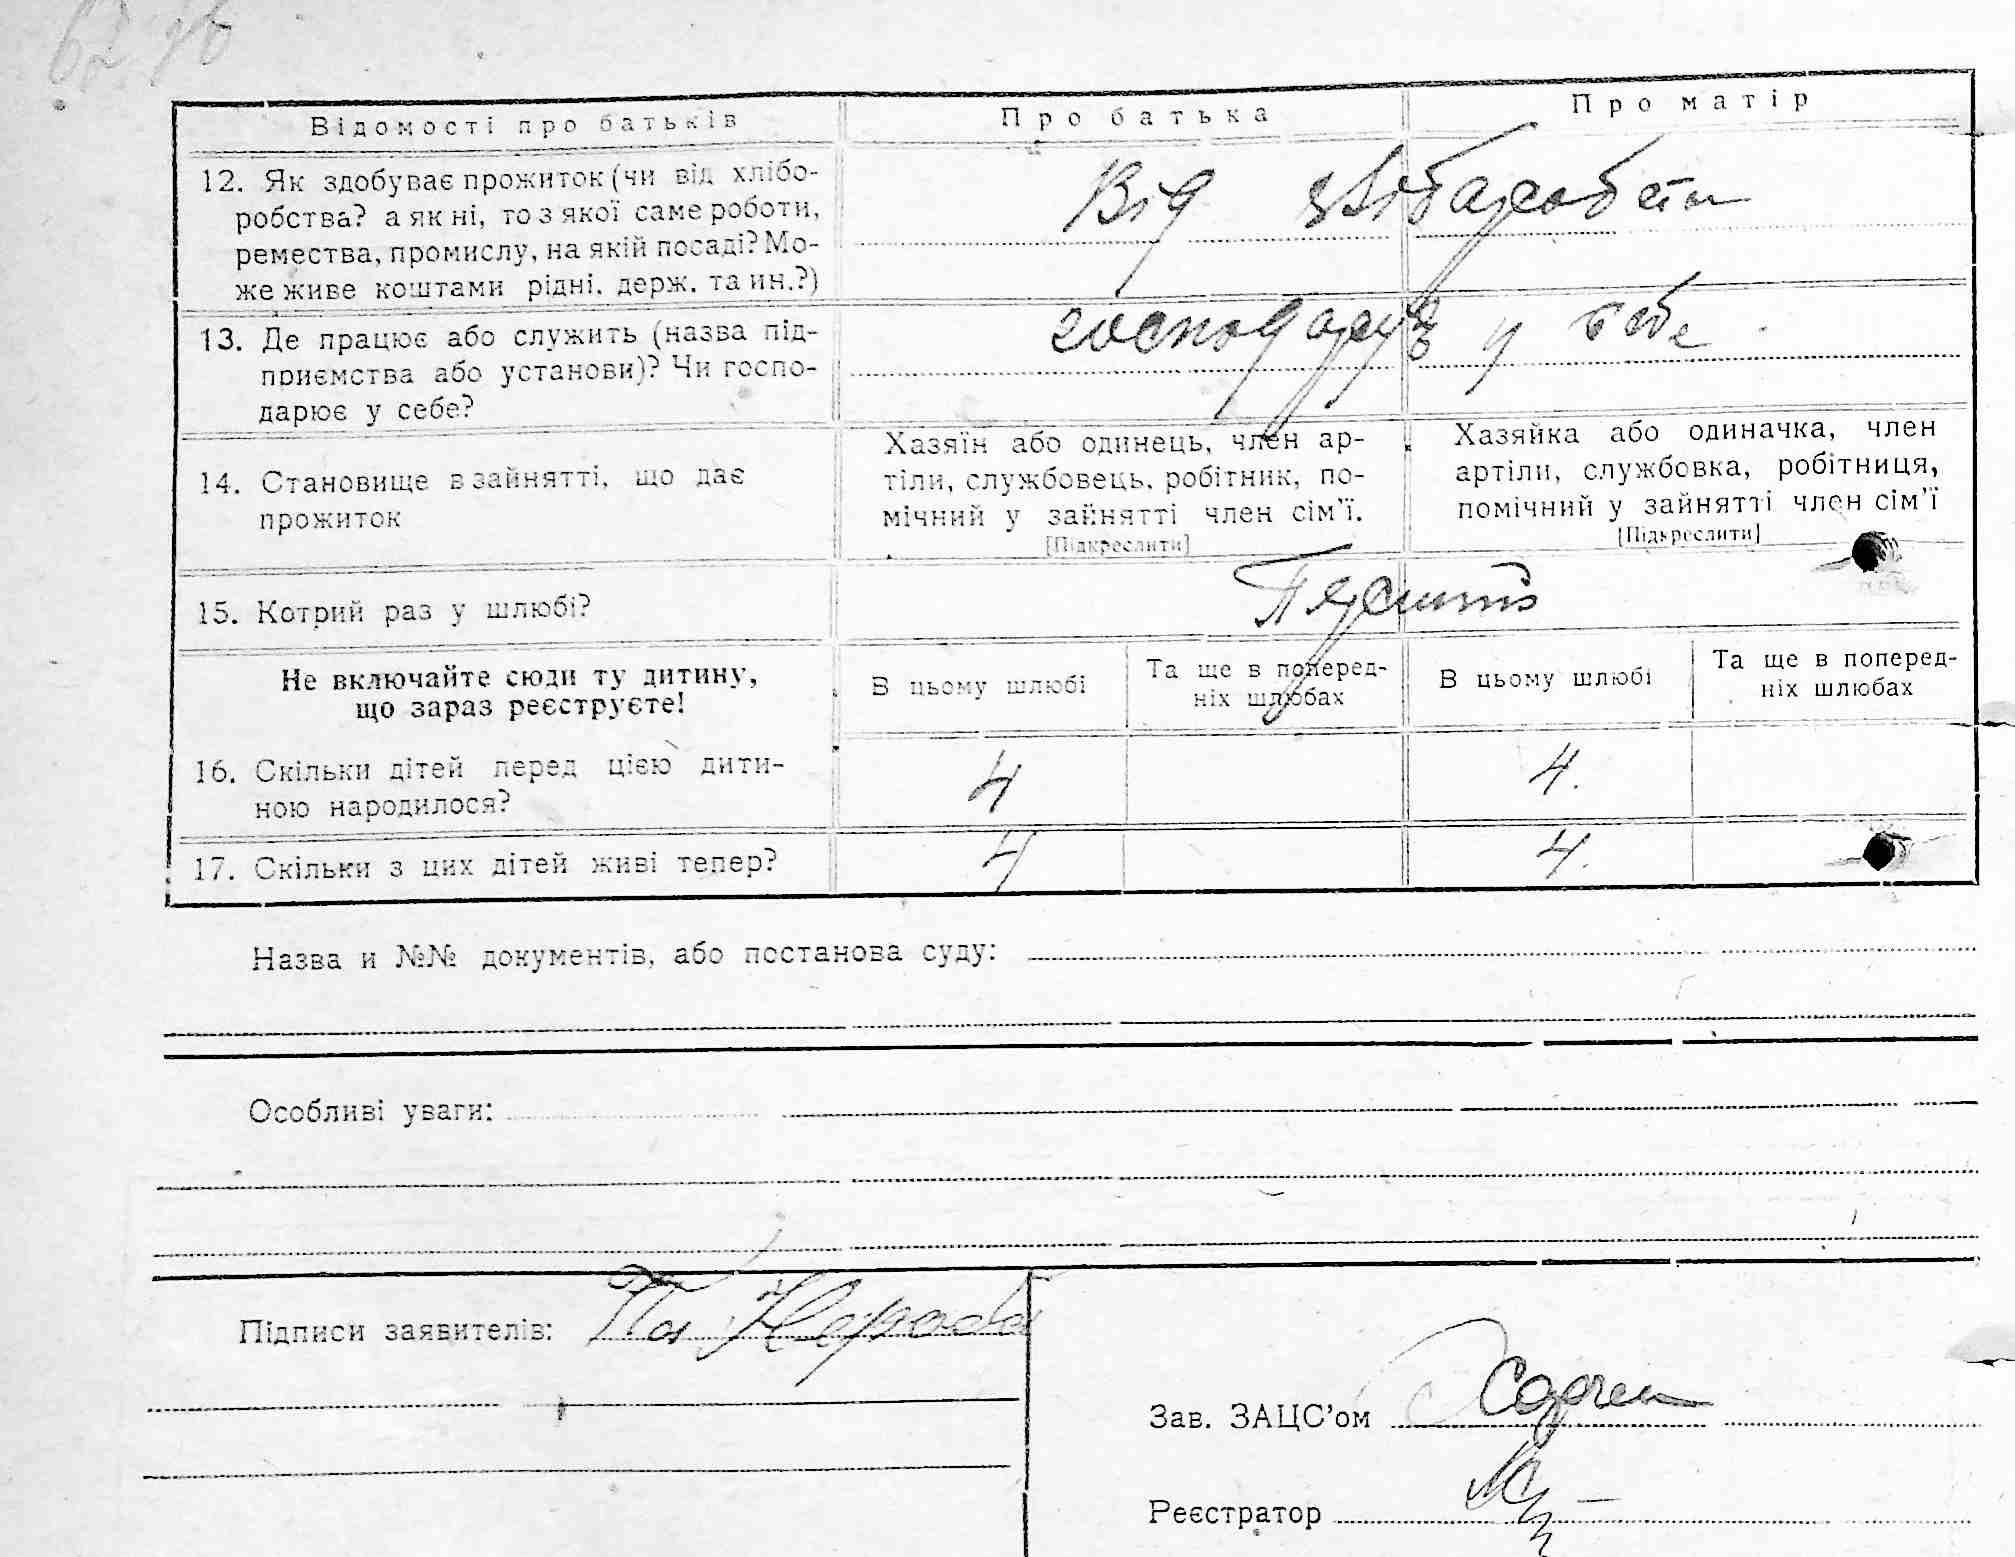 Відомості про батьків
Про батька
Про матір
12. Як здобуває прожиток (чи від хлібо-
робства? а як ні, то з якої саме роботи,
ремества, промислу, на якій посаді? Мо-
же живе коштами рідні, держ. та ин.?)
Від
13. Де працює або служить (назва під-
приємства або установи)? Чи госпо-
дарює у себе?
господарує у себе
14. Становище в зайнятті, що дає
прожиток
Хазяїн або одинець, член ар-
тіли, службовець, робітник, по-
мічний у зайнятті член сім'ї.
[Підкреслити]
Хазяйка або одиначка, член
артіли, службовка, робітниця,
помічний у зайнятті член сім'ї
[Підкреслити]
15. Котрий раз у шлюбі?
Не включайте сюди ту дитину,
що зараз реєструєте!
В цьому шлюбі
Та ще в поперед-
ніх шлюбах
В цьому шлюбі
Та ще в поперед-
ніх шлюбах
16. Скільки дітей перед цією дити-
ною народилося?
4
4.
17. Скільки з цих дітей живі тепер?
4
4.
Назва и №№ документів, або постанова суду:
Особливі уваги:
Підписи заявителів:
Зав. ЗАЦС'ом
Реєстратор